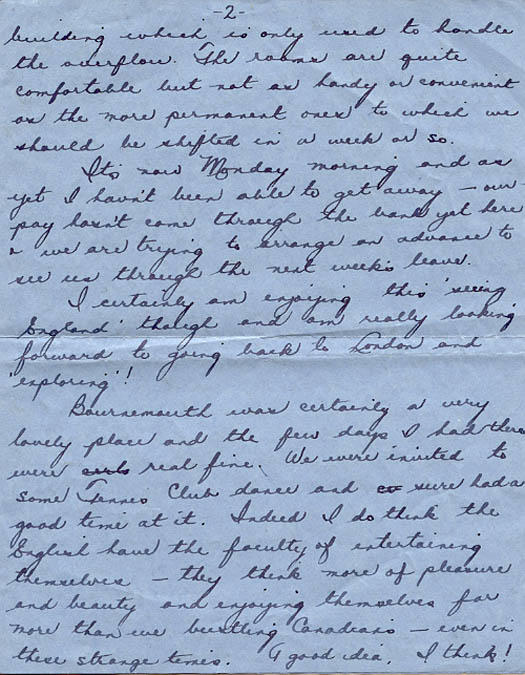 -2-
building which is only used to handle
the overflow. The rooms are quite
comfortable but not as handy or convenient
as the more permanent ones to which we
should be shifted in a week or so.
It's now Monday morning and as
yet I havn't been able to get away - our
pay hasn't come through the bank yet here
& we are trying to arrange an advance to
see us through the next week's leave.
I certainly am enjoying this 'seeing
England' though and am really looking
forward to going back to London and
'exploring'!
Bournemouth was certainly a very
lovely place and the few days I had there
were real fine. We were invited to
some Tennis Club dance and sure had a
good time at it. Indeed I do think the
English have the faculty of entertaining
themselves - they think more of pleasure
and beauty and enjoying themselves far
more than we bustling Canadians - even in
these strange times. A good idea, I think!